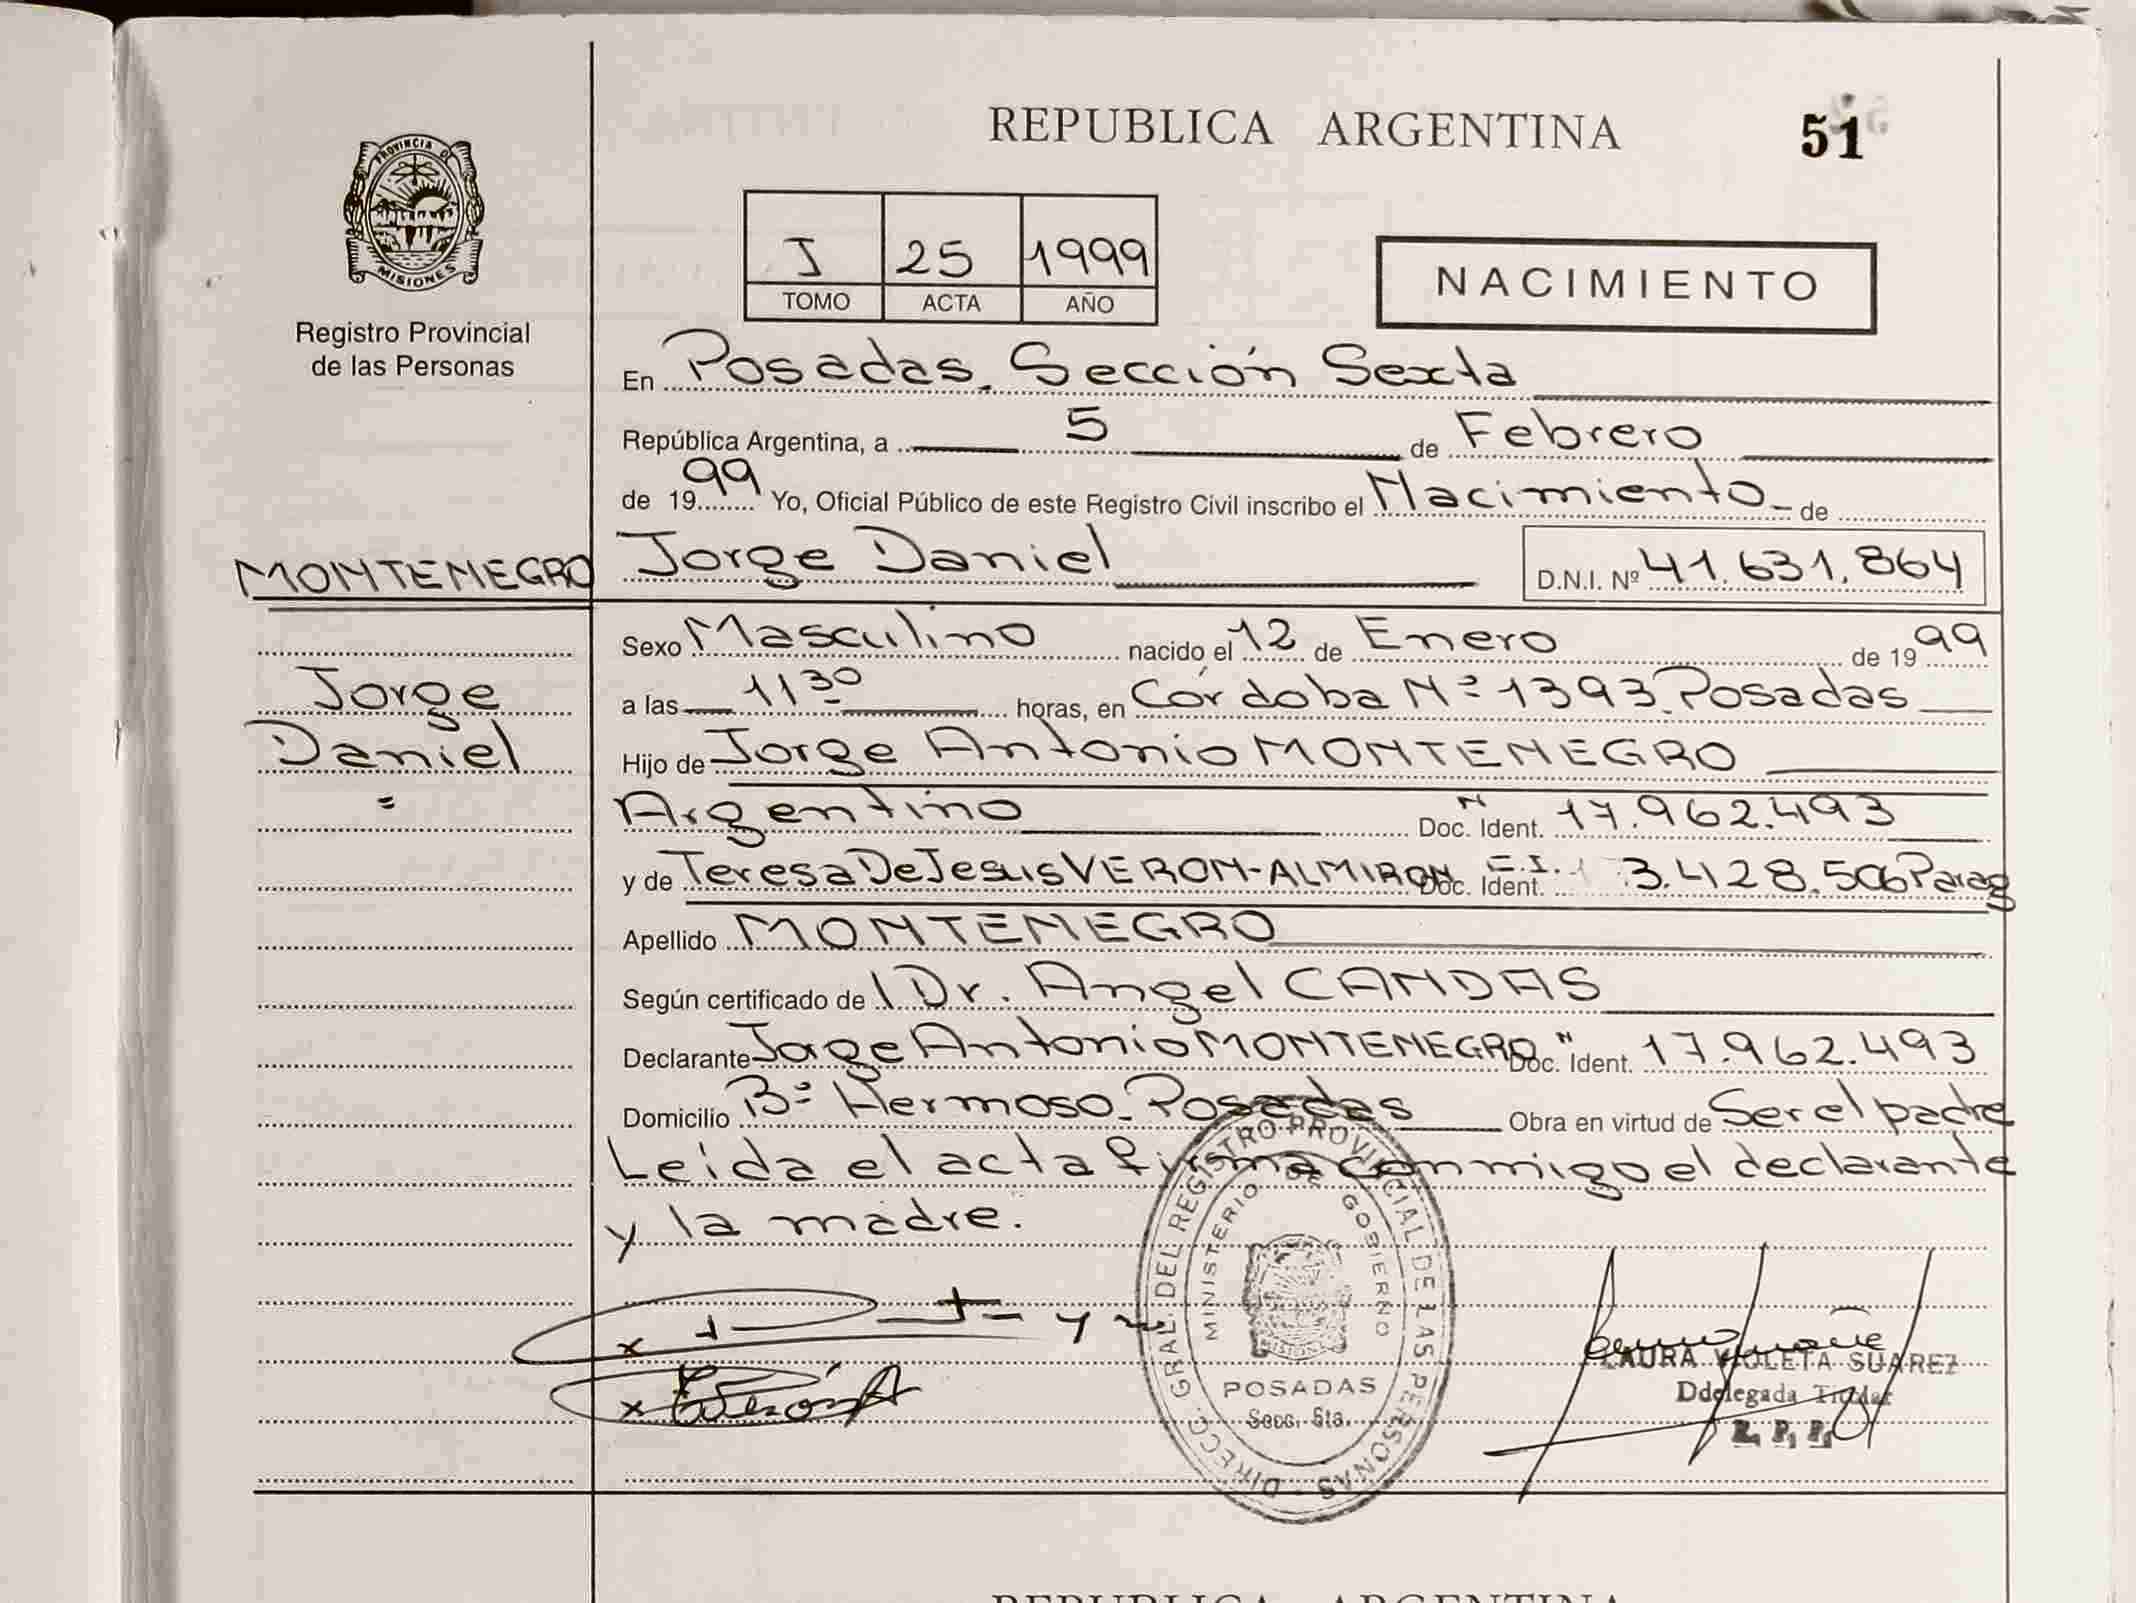 REPUBLICA ARGENTINA
51
PROVINCIA DE
MISIONES
Registro Provincial
de las Personas
I 25 1999
TOMO ACTA AÑO
NACIMIENTO
En Posadas. Sección Sexta
República Argentina, a 5 de Febrero
de 1999 Yo, Oficial Público de este Registro Civil inscribo el Nacimiento de
MONTENEGRO Jorge Daniel D.N.I. Nº 41.631.864
Sexo Masculino nacido el 12 de Enero de 1999
Jorge a las 11 30 horas, en Córdoba Nº 1393. Posadas
Daniel Hijo de Jorge Antonio MONTENEGRO
Argentino Doc. Ident. 17.962.493
y de Teresa De Jesus VERON-ALMIRON Doc. Ident. C.I. 3.428.506 Parag
Apellido MONTENEGRO
Según certificado de l Dr. Angel CANDAS
Declarante Jorge Antonio MONTENEGRO Doc. Ident. 17.962.493
Domicilio Bº Hermoso. Posadas Obra en virtud de Ser el padre
Leída el acta firma conmigo el declarante
y la madre.
DIRECC. GRAL. DEL REGISTRO PROVINCIAL DE LAS PERSONAS
MINISTERIO DE GOBIERNO
MISIONES
POSADAS
Secc. 6ta.
LAURA VIOLETA SUAREZ
Ddelegada Titular
R. P. P.
REPUBLICA ARGENTINA